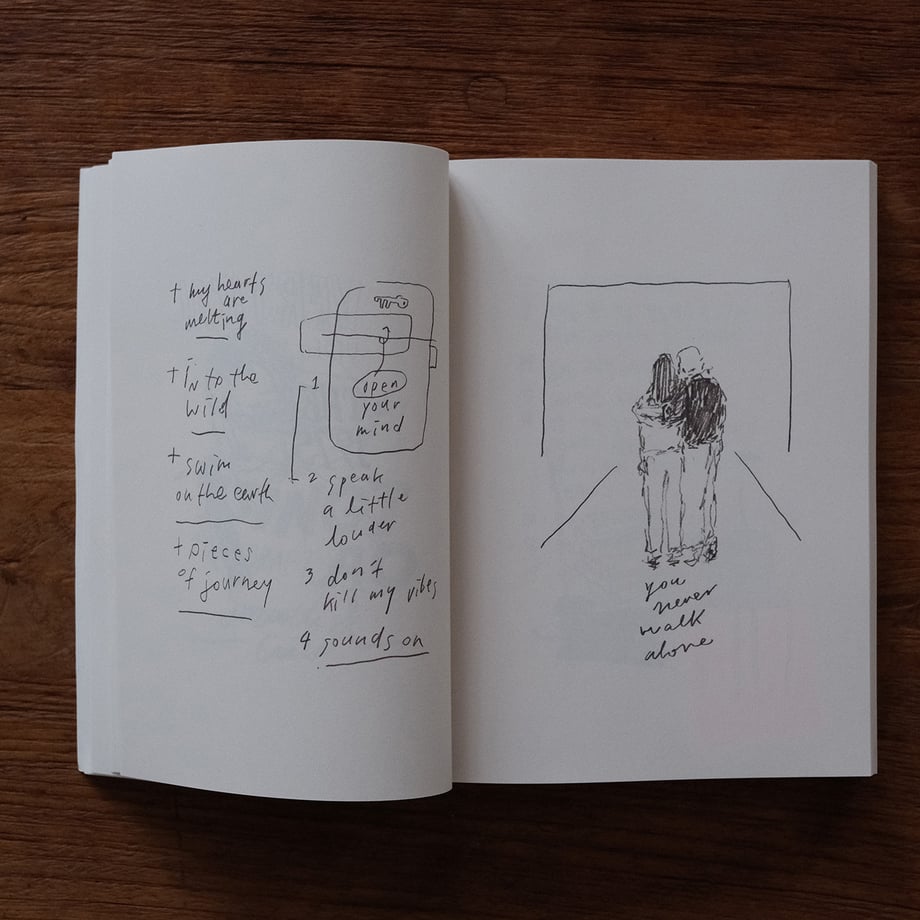 + my hearts
are
melting
+ iN to the
wild
+ swim
on the earth
+ pieces
of journey
1
open
your
mind
2 speak
a little
louder
3 don't
kill my vibes
4 sounds on
you
never
walk
alone